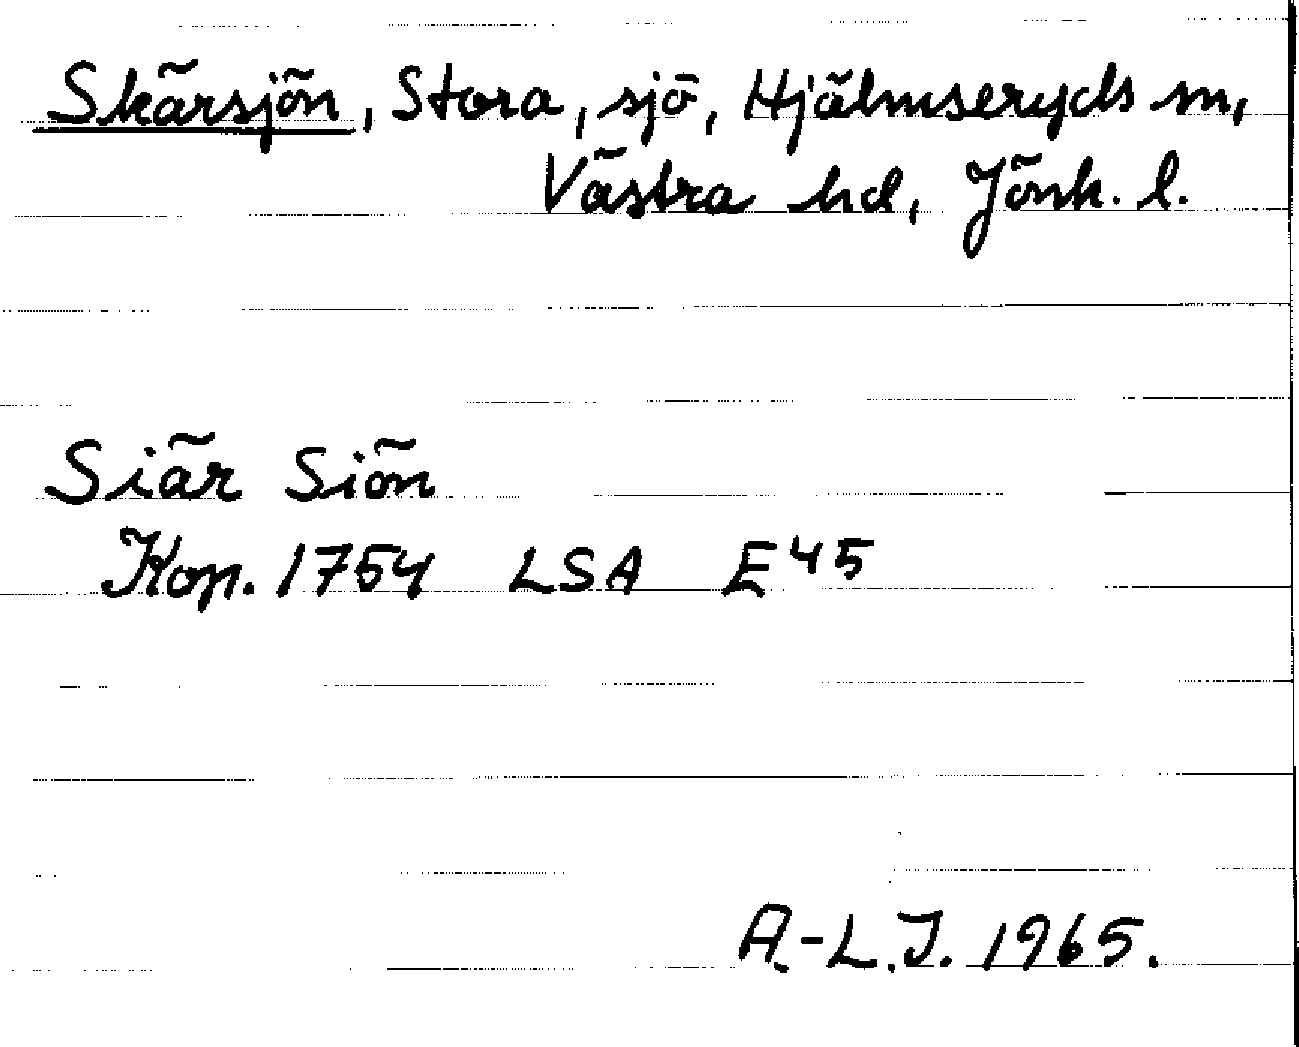 Skärsjön, Stora, sjö, Hjälmseryds sn,
Västra hd, Jönk. l.
Siär Siön
Kop. 1754 LSA E45
A.-L.J. 1965.